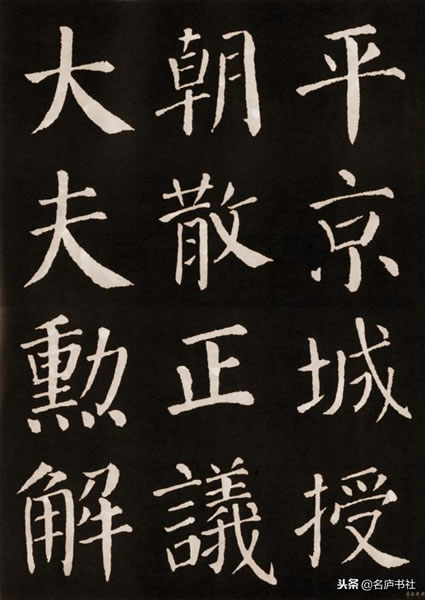 平京城授
朝散正議
大夫勲解
头条 @名庐书社